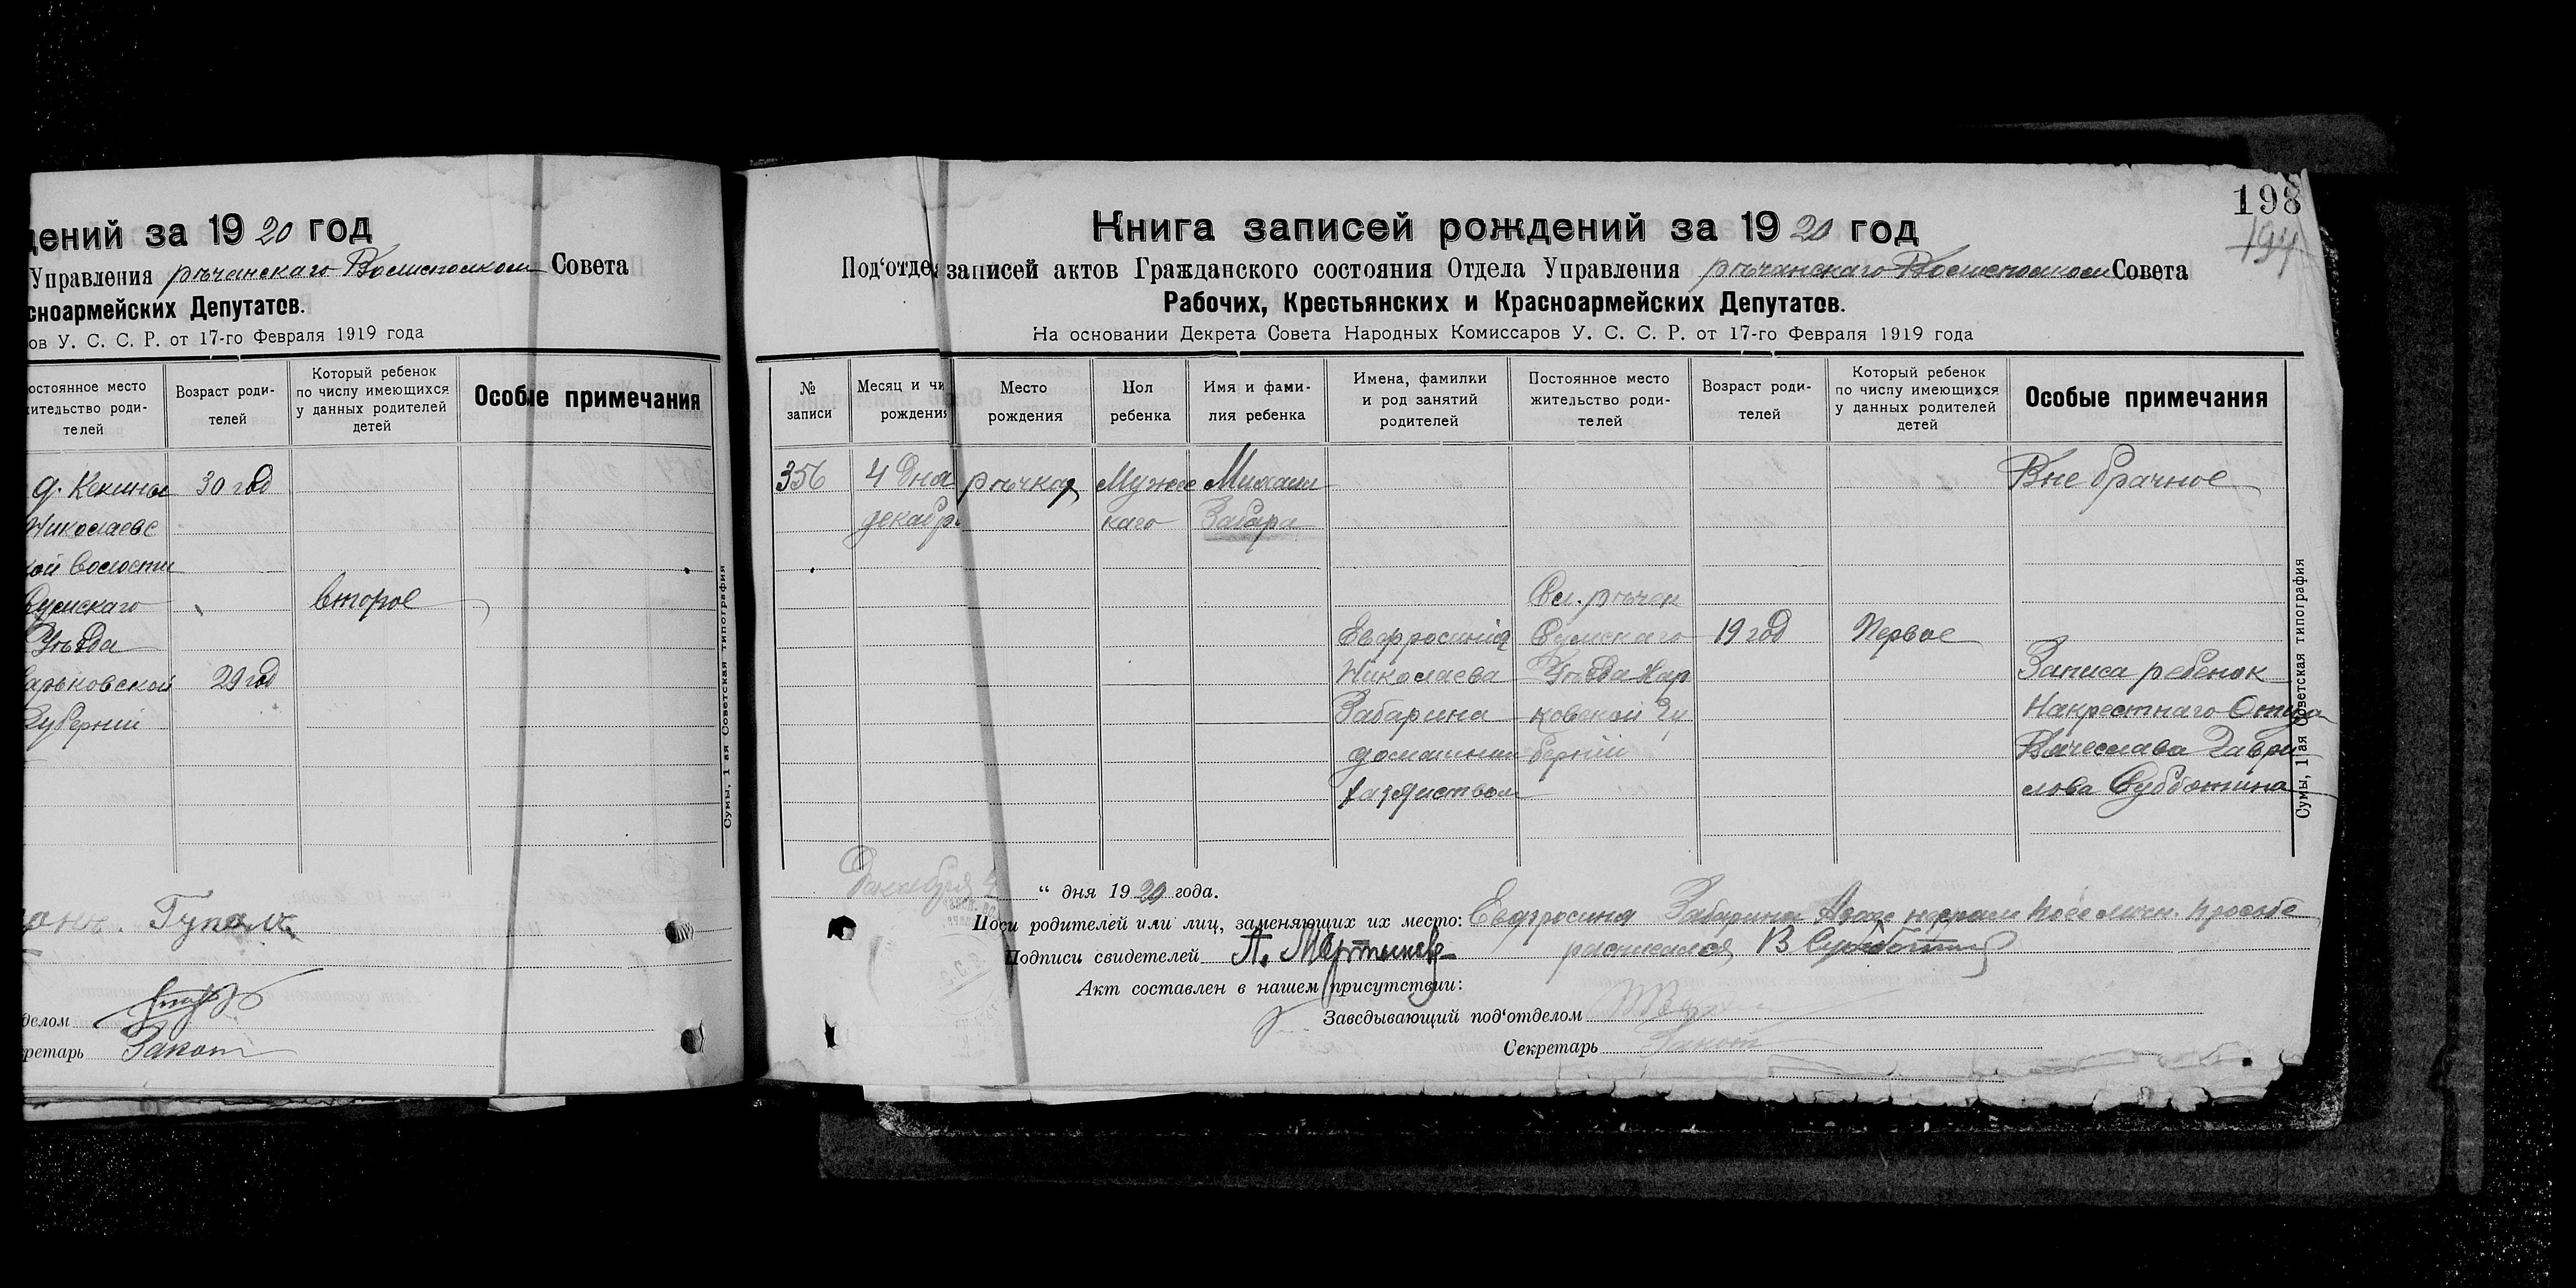 дений за 1920 год
Управления речанскаго Волисполком Совета
сноармейских Депутатов.
ов У. С. С. Р. от 17-го Февраля 1919 года
остоянное место
жительство роди-
телей
Возраст роди-
телей
Который ребенок
по числу имеющихся
у данных родителей
детей
Особые примечания
д. Кекины 30 год
Николаевс
кой волости
Сумскаго второе
Уѣзда
арьковской 29 год
Губерній
Сумы, 1 ая Советская типография
Гупал
делом
кретарь
198
194
Книга записей рождений за 1920 год
Под'отдел записей актов Гражданского состояния Отдела Управления рѣчанскаго Волисполком Совета
Рабочих, Крестьянских и Красноармейских Депутатов.
На основании Декрета Совета Народных Комиссаров У. С. С. Р. от 17-го Февраля 1919 года
№
записи
Месяц и чи
рождения
Место
рождения
Пол
ребенка
Имя и фами-
лия ребенка
Имена, фамилии
и род занятий
родителей
Постоянное место
жительство роди-
телей
Возраст роди-
телей
Который ребенок
по числу имеющихся
у данных родителей
детей
Особые примечания
356 4 дня рѣчка Мужес Михаил Вне брачное
декабря каго Забара
Сл. рѣчек
Евфросиния Сумскаго 19 год Первое
Николаева Уѣзда Хар Записа ребенок
Забарина ковской Гу Накрестнаго Отца
домашним берній Вячеслава Гаври
хазяиством лова Субботина
Сумы, 1 ая Советская типография
Декабря 4 “ дня 1920 года.
Поси родителей или лиц, заменяющих их место: Евфросиния Забарина личн. просьбе
Подписи свидетелей А. Мартынов расписался В Субботин
Акт составлен в нашем присутствии:
Заведывающий под'отделом
Секретарь